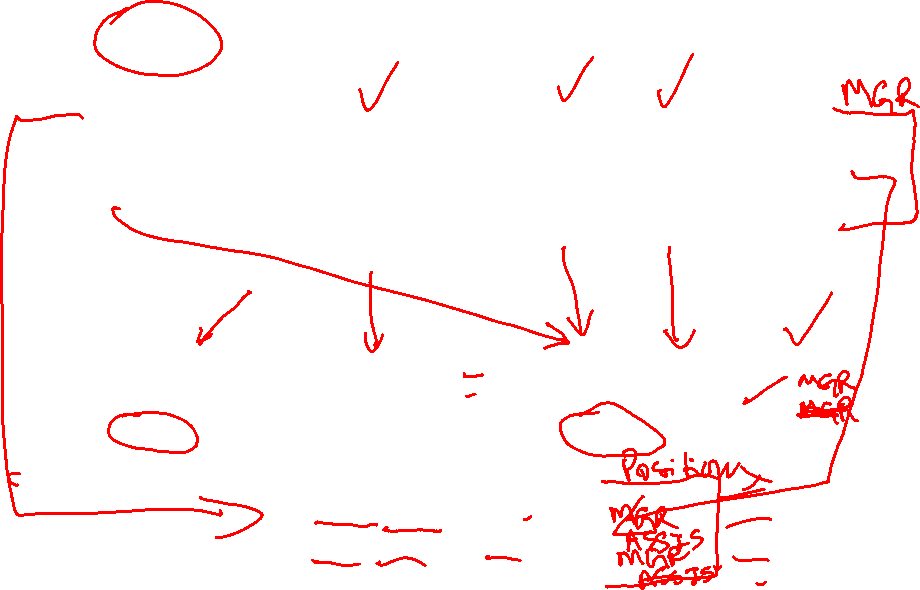 MGR
MGR
MGR
Position
MGR
ASSIS
MGR
ASSIS